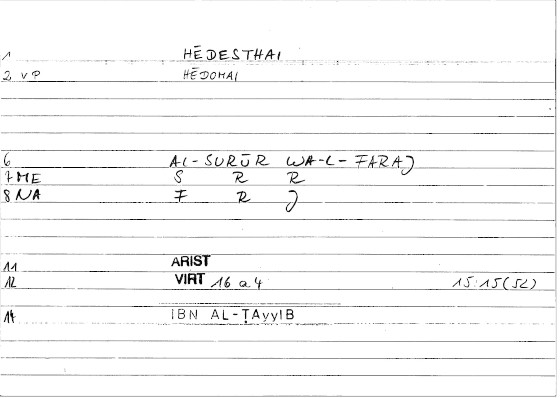 1 HĒDESTHAI
2 VP HĒDOMAI
6 AL-SURŪR WA-L-FARAJ
7 ME S R R
8 NA F R J
11 ARIST
12 VIRT 16 a 4 15:15(52)
14 IBN AL-ṬAyyIB